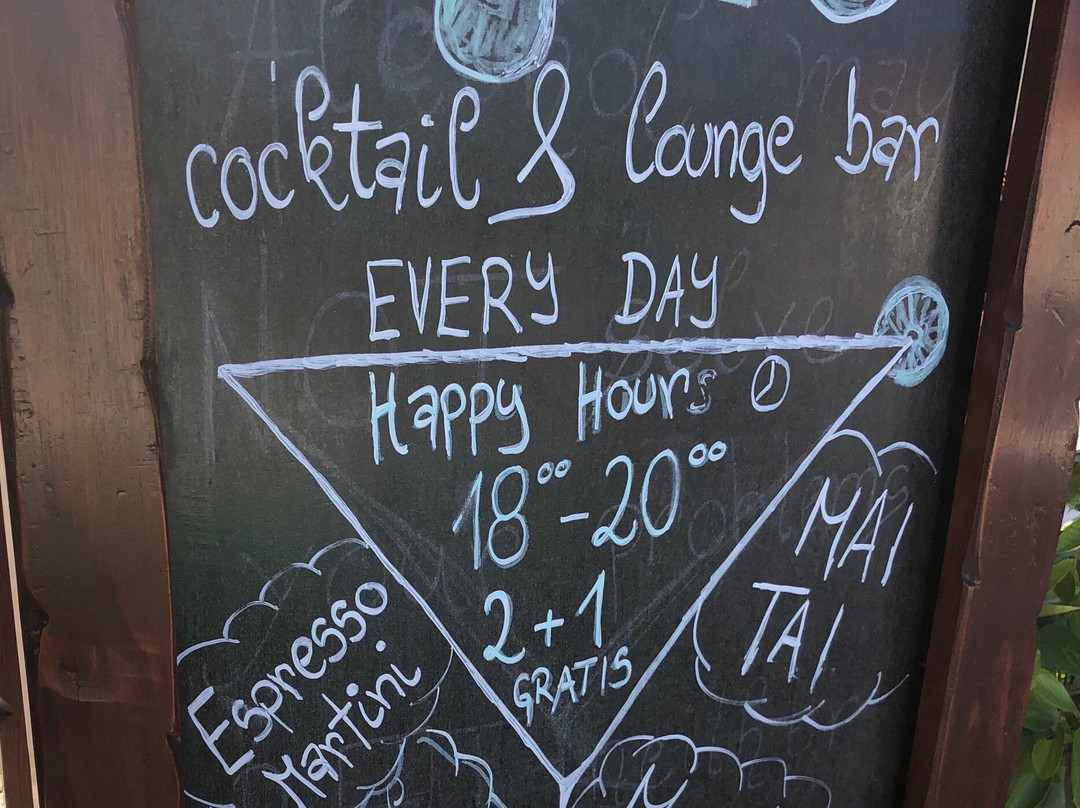 cocktail & lounge bar
EVERY DAY
Happy Hours
18⁰⁰ - 20⁰⁰
2 + 1
GRATIS
MAI
TAI
Espresso
Martini